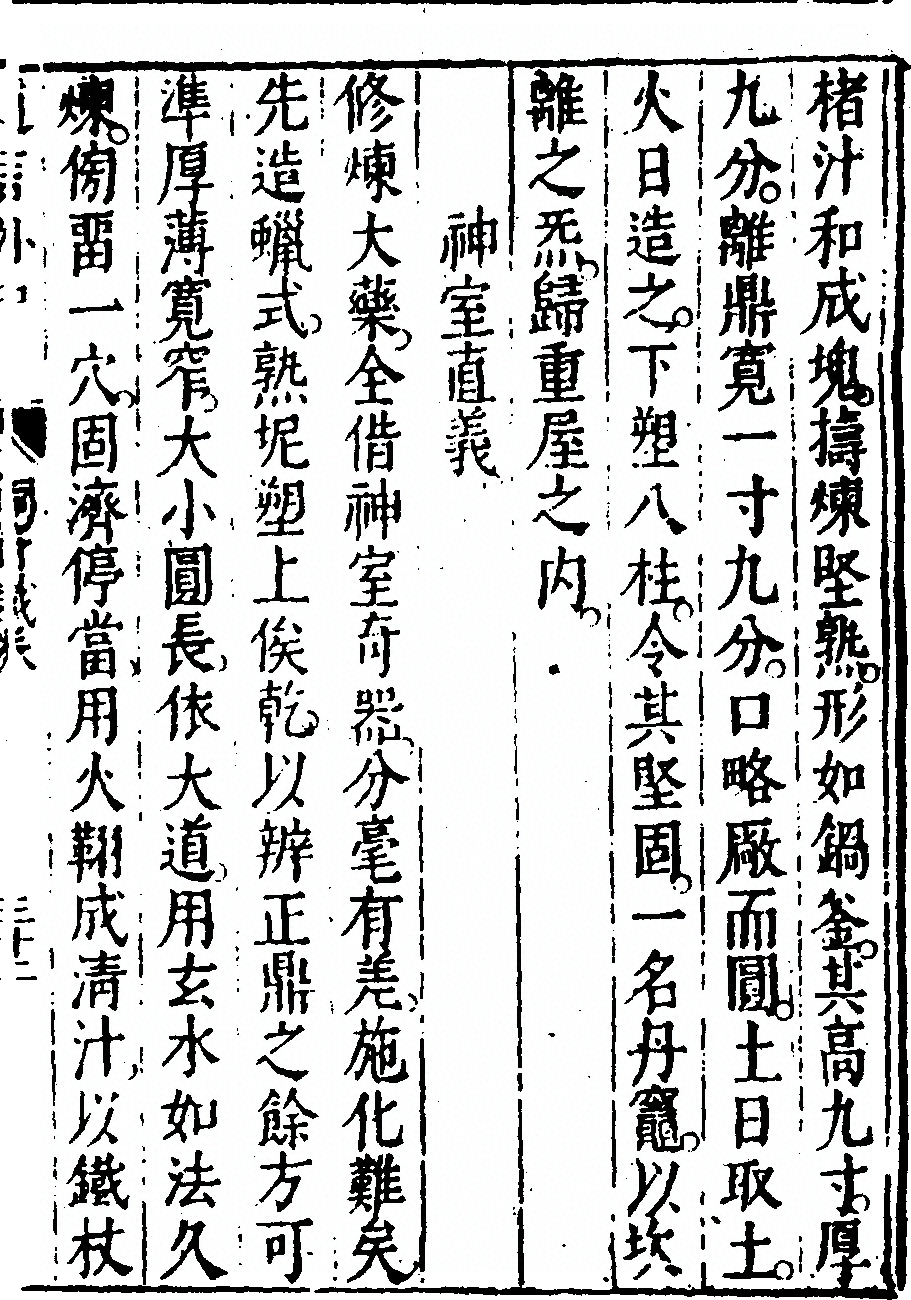 楮汁和成塊擣煉堅熟形如鍋釜其高九寸厚
九分離鼎寬一寸九分口略廠而圓土日取土
火日造之下塑八柱令其堅固一名丹竈以坎
離之炁歸重屋之内
神室直義
修煉大藥全偕神室奇器分毫有差施化難矣
先造蠟式熟坭塑上俟乾以辨正鼎之餘方可
準厚薄寬窄大小圓長依大道用玄水如法久
煉傍畱一穴固濟停當用火翱成清汁以鐵杖
三十二